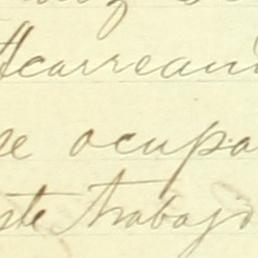 Acarrean
se ocupa
ste trabajo